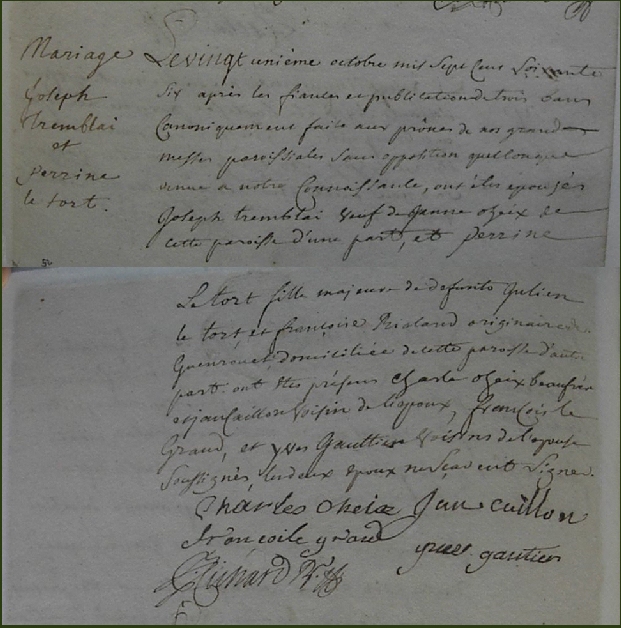 Mariage
Joseph
tremblai
et
perrine
le tort.
Le vingt unième octobre mil Sept Cens Soixante
Six après les fiances et publication de trois bans
Canoniquement faite aux prônes de nos grand
messes paroissiales Sans opposition quelconque
venue a notre Connaissance, ont étés épousés
Joseph tremblai veuf de Janne oheix de
cette paroisse d'une part, et perrine
Le tort fille majeure de defunts Julien
le tort et françoise Rialand originaire de
Guenrouet, domiciliée de cette paroisse d'autre
part. ont étés présens charle oheix beaufrère
et jan Caillon voisin de l'epoux, françois le
Grand, et yves Gauttier voisins de l'epouse
Soussignés, les deux epoux ne scavent Signer.
Charles oheix Jan cuillon
francois le grand yves gautier